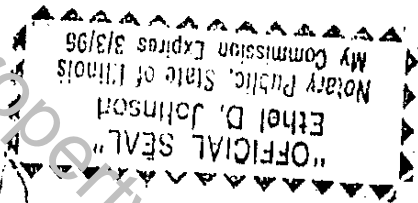 "OFFICIAL SEAL"
Ethel D. Johnson
Notary Public, State of Illinois
My Commission Expires 3/3/95